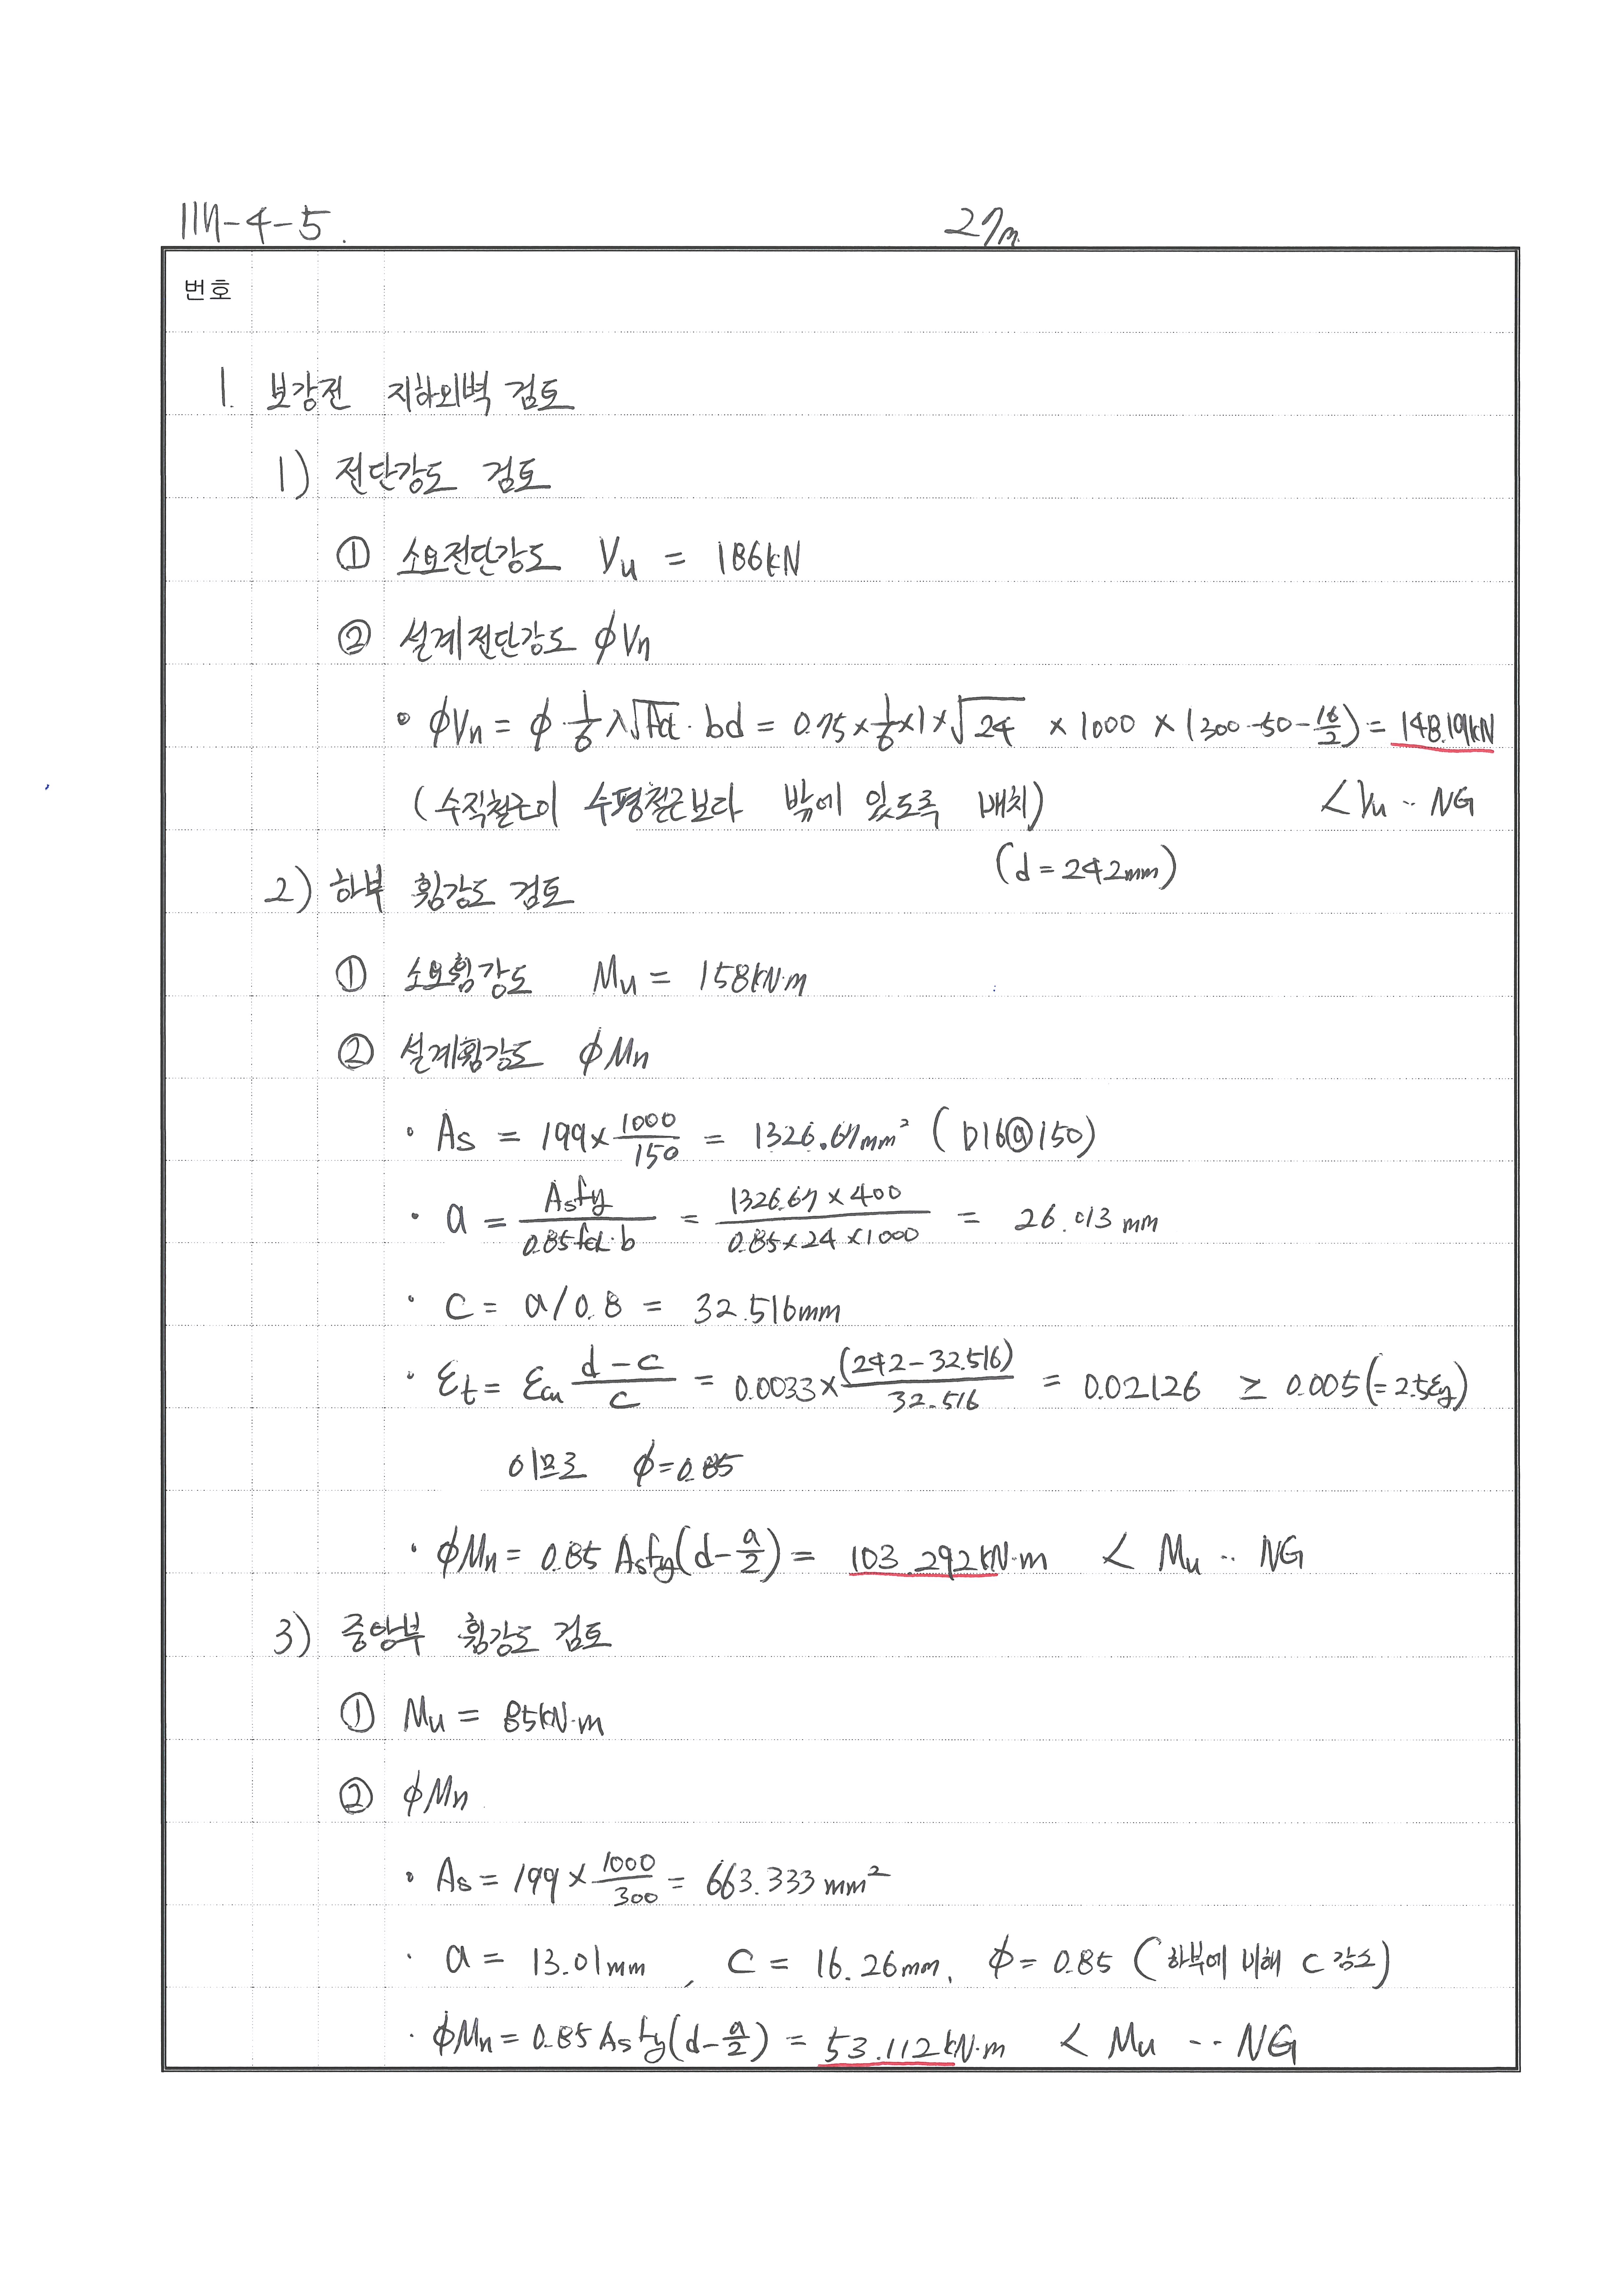 117-4-5.
27m
번호
1. 보강전 지하외벽 검토
1) 전단강도 검토
① 소요전단강도 Vu = 186kN
② 설계전단강도 ϕVn
• ϕVn = ϕ·1/6 λ√fck · bd = 0.75 × 1/6 × 1 × √24 × 1000 × (300-50-16/2) = 148.19kN
(수직철근이 수평철근보다 밖에 있도록 배치) < Vu ·· NG
(d = 242mm)
2) 하부 휨강도 검토
① 소요휨강도 Mu = 158kN·m
② 설계휨강도 ϕMn
• As = 199 × 1000/150 = 1326.67mm² (D16@150)
• a = Asfy / 0.85fck·b = 1326.67 × 400 / 0.85 × 24 × 1000 = 26.013 mm
• c = a/0.8 = 32.516mm
• εt = εcu d-c / c = 0.0033 × (242-32.516) / 32.516 = 0.02126 ≥ 0.005 (= 2.5εy)
이므로 ϕ = 0.85
• ϕMn = 0.85 Asfy(d-a/2) = 103.292kN·m < Mu ·· NG
3) 중앙부 휨강도 검토
① Mu = 85kN·m
② ϕMn
• As = 199 × 1000/300 = 663.333 mm²
• a = 13.01mm, c = 16.26mm, ϕ = 0.85 (하부에 비해 c 감소)
• ϕMn = 0.85 Asfy(d-a/2) = 53.112kN·m < Mu ·· NG